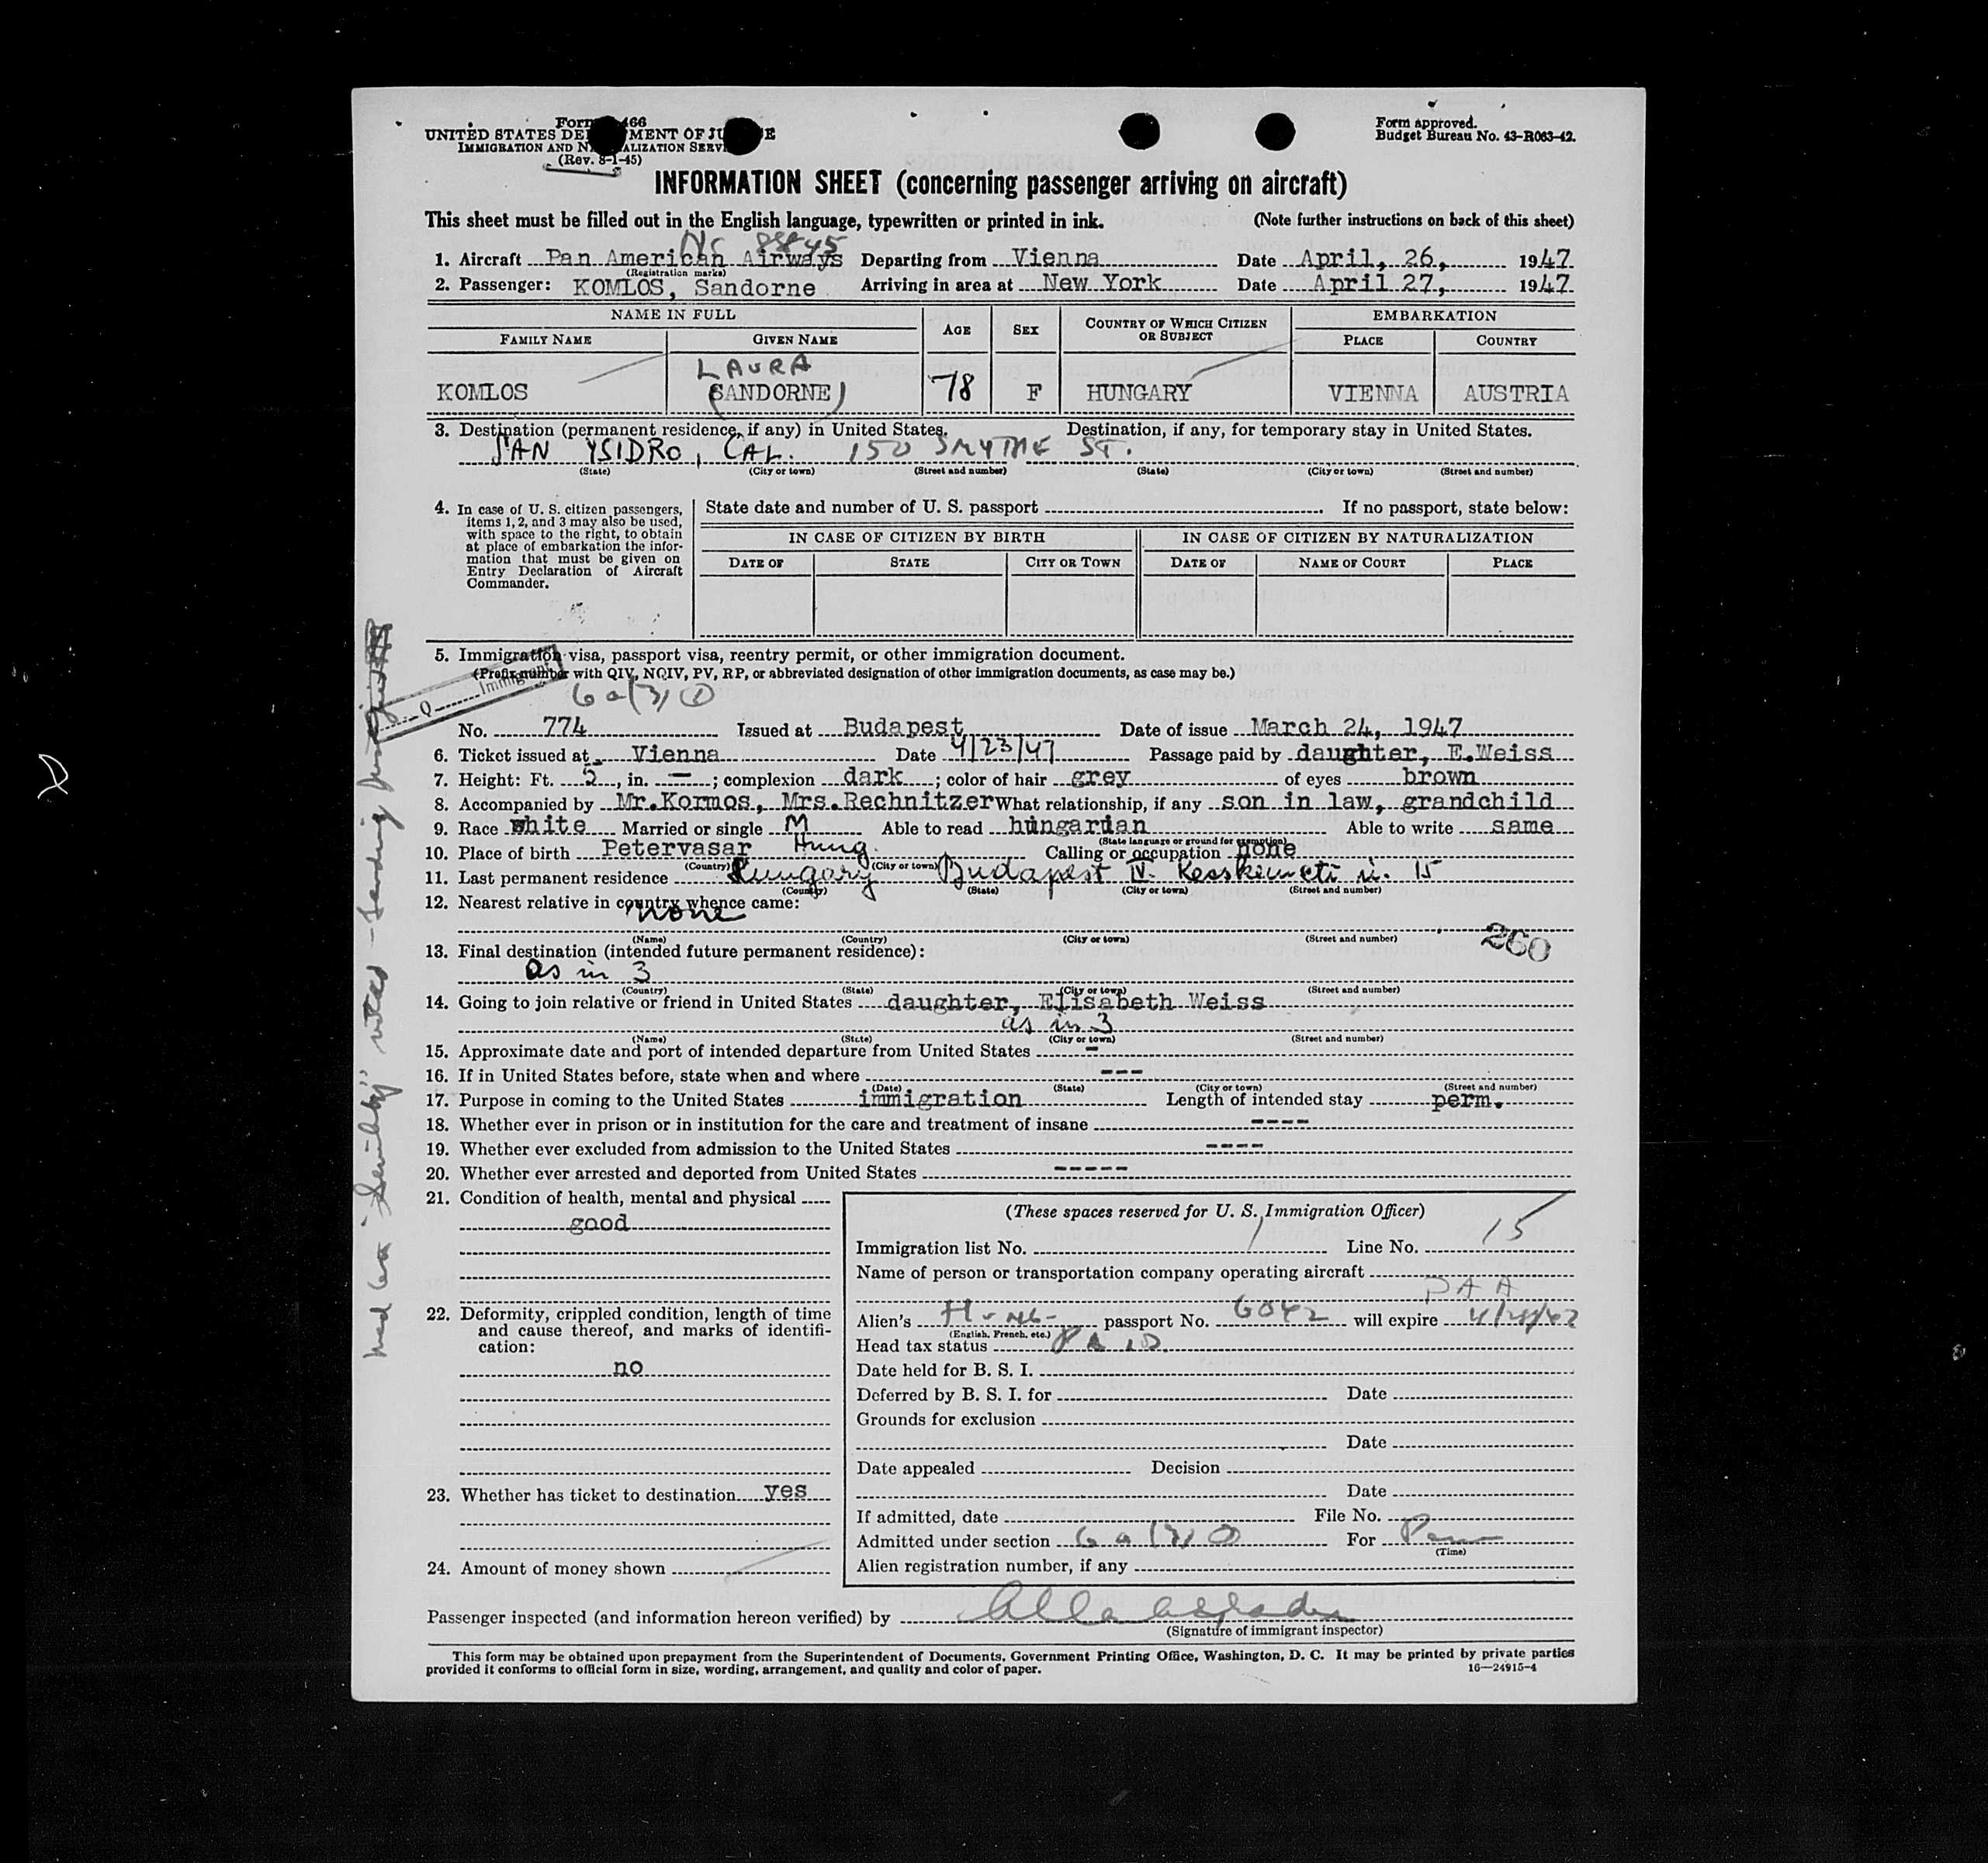 Form 466
UNITED STATES DEPARTMENT OF JUSTICE
IMMIGRATION AND NATURALIZATION SERVICE
(Rev. 8-1-45)
Form approved.
Budget Bureau No. 43-R063-42.
INFORMATION SHEET (concerning passenger arriving on aircraft)
This sheet must be filled out in the English language, typewritten or printed in ink. (Note further instructions on back of this sheet)
NC 88845
1. Aircraft Pan American Airways Departing from Vienna Date April, 26, 1947
(Registration marks)
2. Passenger: KOMLOS, Sandorne Arriving in area at New York Date April 27, 1947
NAME IN FULL AGE SEX COUNTRY OF WHICH CITIZEN OR SUBJECT EMBARKATION
FAMILY NAME GIVEN NAME PLACE COUNTRY
LAURA
KOMLOS (SANDORNE) 78 F HUNGARY VIENNA AUSTRIA
3. Destination (permanent residence, if any) in United States. Destination, if any, for temporary stay in United States.
SAN YSIDRO, CAL. 150 SMYTHE ST.
(State) (City or town) (Street and number) (State) (City or town) (Street and number)
4. In case of U. S. citizen passengers, items 1, 2, and 3 may also be used, with space to the right, to obtain at place of embarkation the information that must be given on Entry Declaration of Aircraft Commander.
State date and number of U. S. passport If no passport, state below:
IN CASE OF CITIZEN BY BIRTH IN CASE OF CITIZEN BY NATURALIZATION
DATE OF STATE CITY OR TOWN DATE OF NAME OF COURT PLACE
5. Immigration visa, passport visa, reentry permit, or other immigration document.
(Prefix number with QIV, NQIV, PV, RP, or abbreviated designation of other immigration documents, as case may be.)
Q Immigrant
6a(3)①
No. 774 Issued at Budapest Date of issue March 24, 1947
6. Ticket issued at Vienna Date 4/23/47 Passage paid by daughter, E.Weiss
7. Height: Ft. 5, in. —; complexion dark; color of hair grey of eyes brown
8. Accompanied by Mr.Kormos, Mrs.Rechnitzer What relationship, if any son in law, grandchild
9. Race white Married or single M Able to read hungarian Able to write same
(State language or ground for exemption)
10. Place of birth Petervasar Hung. Calling or occupation none
(Country) (City or town)
11. Last permanent residence Hungary Budapest IV. Kesskemeti u. 15
(Country) (State) (City or town) (Street and number)
12. Nearest relative in country whence came:
none
(Name) (Country) (City or town) (Street and number)
260
13. Final destination (intended future permanent residence):
as in 3
(Country) (State) (City or town) (Street and number)
14. Going to join relative or friend in United States daughter, Elisabeth Weiss
as in 3
(Name) (State) (City or town) (Street and number)
15. Approximate date and port of intended departure from United States -
16. If in United States before, state when and where ---
(Date) (State) (City or town) (Street and number)
17. Purpose in coming to the United States immigration Length of intended stay perm.
18. Whether ever in prison or in institution for the care and treatment of insane ----
19. Whether ever excluded from admission to the United States ----
20. Whether ever arrested and deported from United States -----
21. Condition of health, mental and physical
good
22. Deformity, crippled condition, length of time and cause thereof, and marks of identification:
no
23. Whether has ticket to destination yes
24. Amount of money shown
(These spaces reserved for U. S. Immigration Officer)
Immigration list No. 1 Line No. 15
Name of person or transportation company operating aircraft
PAA
Alien's Hung passport No. 6042 will expire
(English, French, etc.)
Head tax status PAID
Date held for B. S. I.
Deferred by B. S. I. for Date
Grounds for exclusion
Date
Date appealed Decision
Date
If admitted, date File No.
Admitted under section 6a(3)① For Perm
(Time)
Alien registration number, if any
Passenger inspected (and information hereon verified) by
(Signature of immigrant inspector)
This form may be obtained upon prepayment from the Superintendent of Documents, Government Printing Office, Washington, D. C. It may be printed by private parties
provided it conforms to official form in size, wording, arrangement, and quality and color of paper. 16—24915-4
med "Senility"